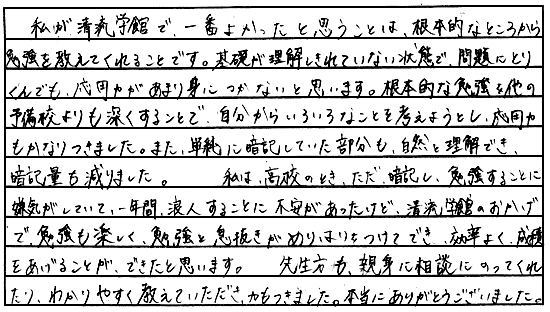 私が清流学館で、一番よかったと思うことは、根本的なところから
勉強を教えてくれることです。基礎が理解しきれていない状態で、問題にとり
くんでも、応用力があまり身につかないと思います。根本的な勉強を他の
予備校よりも深くすることで、自分からいろいろなことを考えようとし、応用力
もかなりつきました。また、単純に暗記していた部分も、自然と理解でき、
暗記量も減りました。　私は、高校のとき、ただ、暗記し、勉強することに
嫌気がしていて、一年間、浪人することに不安があったけど、清流学館のおかげ
で、勉強も楽しく、勉強と息抜きがめりはりをつけてでき、効率よく、成績
をあげることが、できたと思います。　先生方も、親身に相談にのってくれ
たり、わかりやすく教えていただき、力もつきました。本当にありがとうございました。